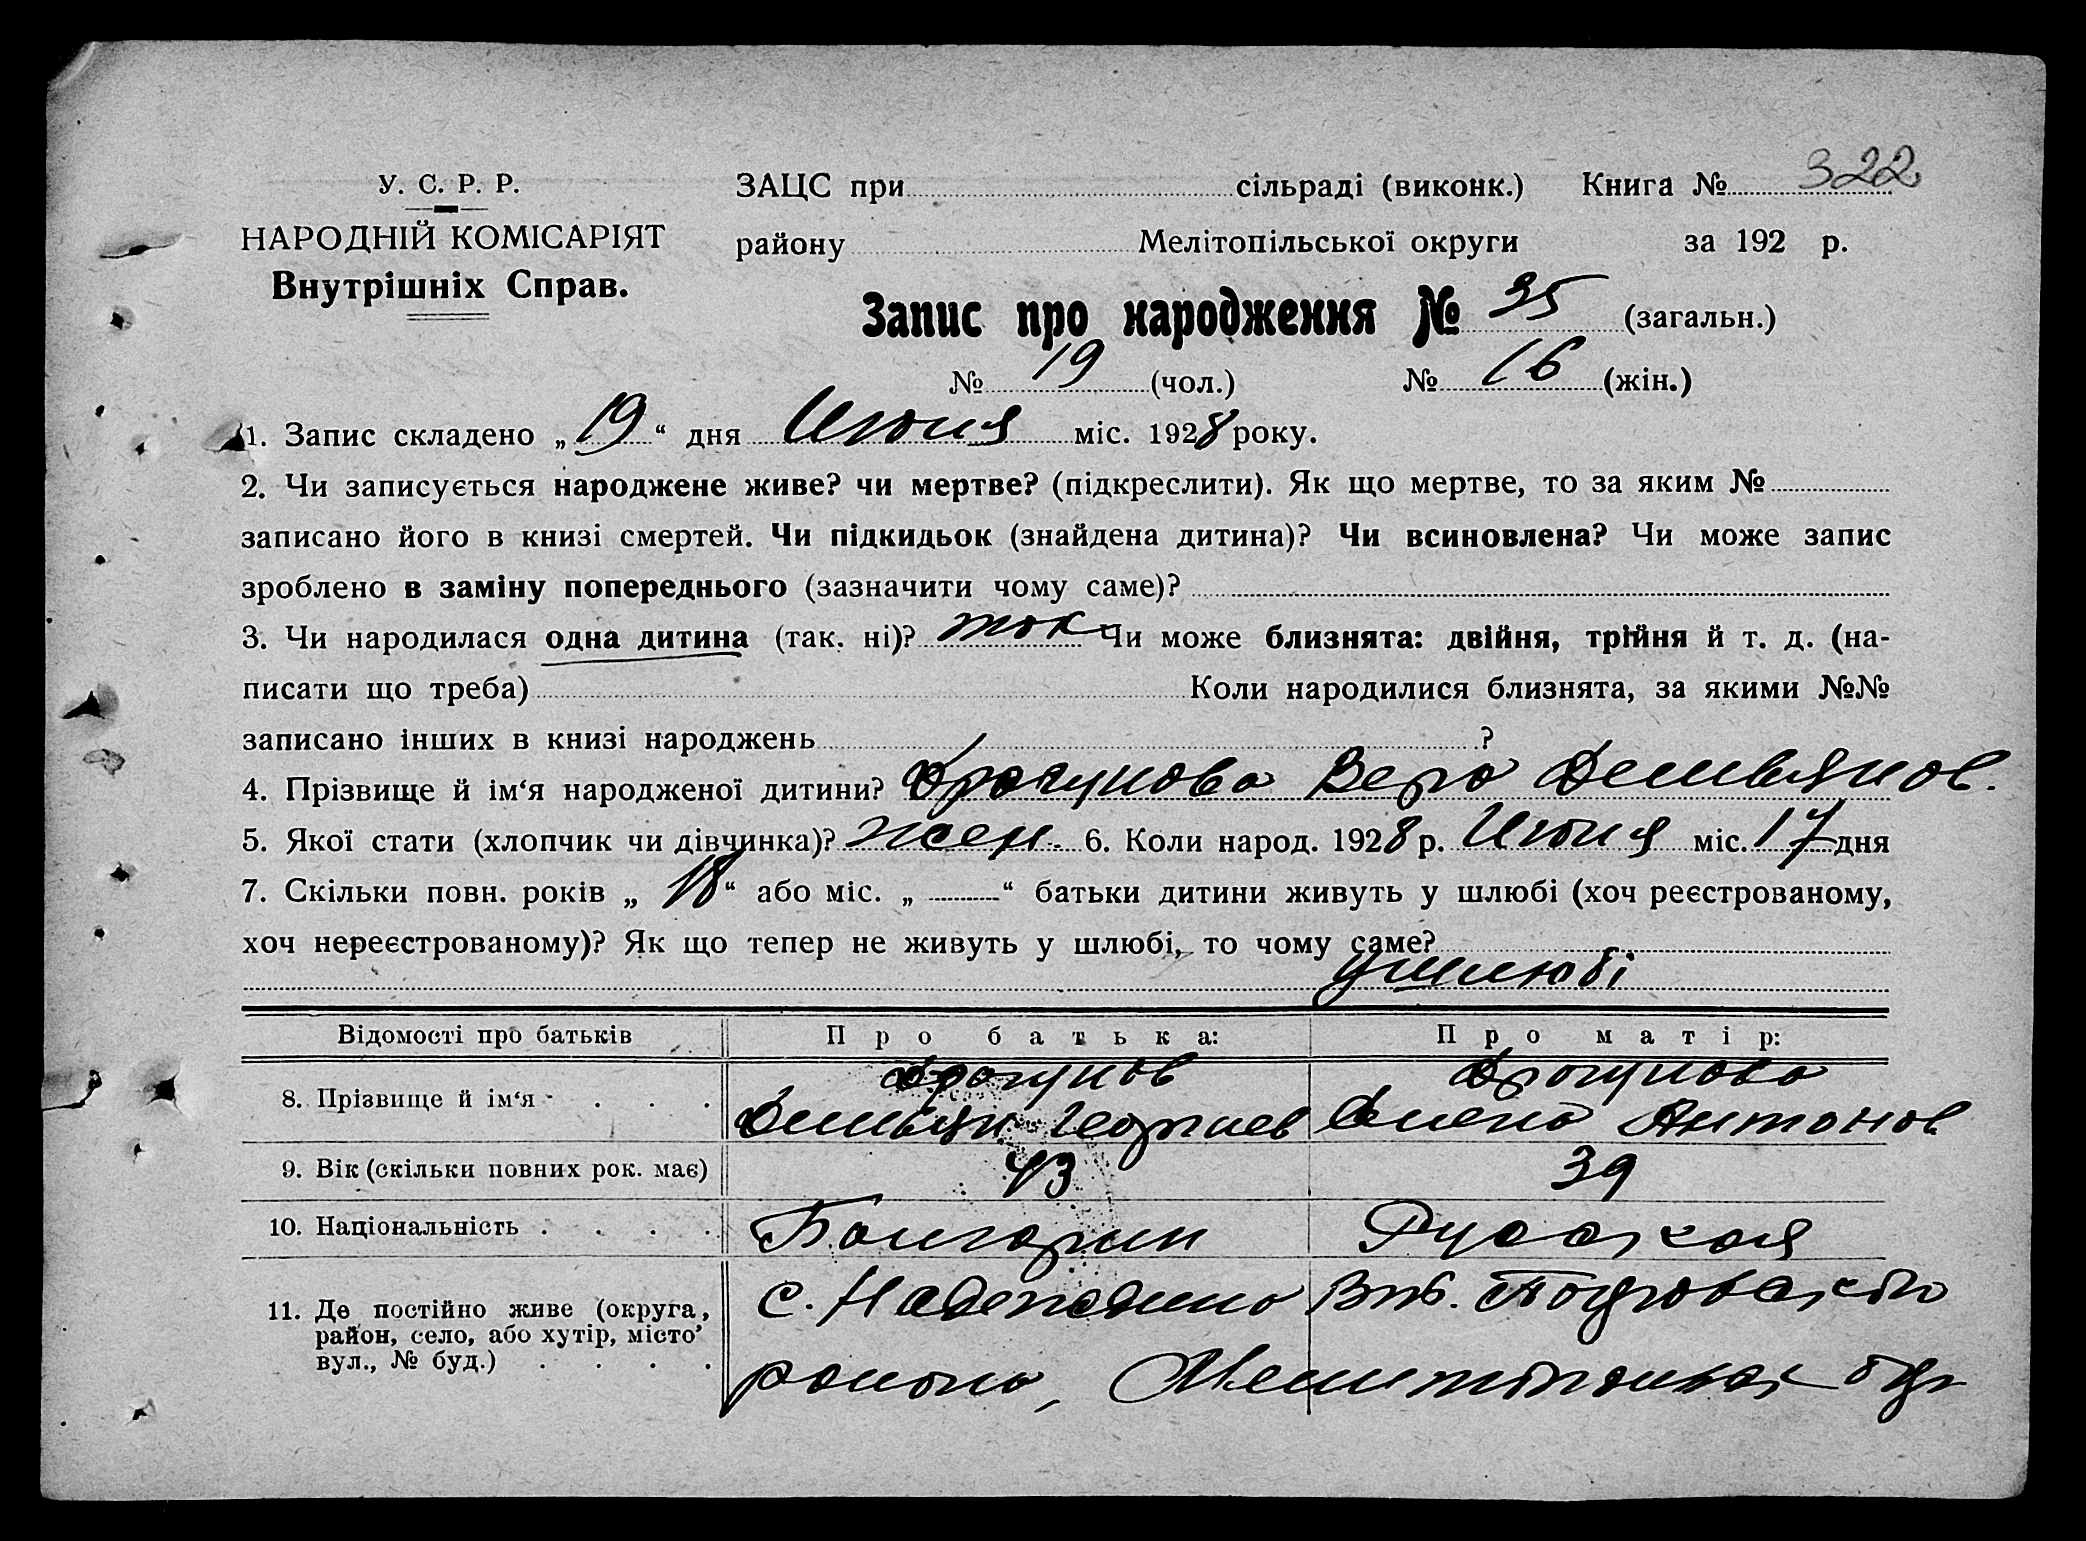 322
У. С. Р. Р.
НАРОДНІЙ КОМІСАРІЯТ
Внутрішніх Справ.
ЗАЦС при сільраді (виконк.) Книга №
району Мелітопільської округи за 192 р.
Запис про народження № 35 (загальн.)
№ 19 (чол.) № 16 (жін.)
1. Запис складено „19“ дня Июня міс. 1928 року.
2. Чи записується народжене живе? чи мертве? (підкреслити). Як що мертве, то за яким №
записано його в книзі смертей. Чи підкидьок (знайдена дитина)? Чи всиновлена? Чи може запис
зроблено в заміну попереднього (зазначити чому саме)?
3. Чи народилася одна дитина (так. ні)? так Чи може близнята: двійня, трійня й т. д. (на-
писати що треба) Коли народилися близнята, за якими №№
записано інших в книзі народжень ?
4. Прізвище й ім‘я народженої дитини? Драгунова Вера Демьянов.
5. Якої стати (хлопчик чи дівчинка)? жен. 6. Коли народ. 1928 р. Июня міс. 17 дня
7. Скільки повн. років „18“ або міс. „ “ батьки дитини живуть у шлюбі (хоч реєстрованому,
хоч нереєстрованому)? Як що тепер не живуть у шлюбі, то чому саме?
у шлюбі
Відомості про батьків Про батька: Про матір:
8. Прізвище й ім‘я Драгунов Демьян Георгиев Драгунова Елена Антонов.
9. Вік (скільки повних рок. має) 43 39
10. Національність Болгарин Русская
11. Де постійно живе (округа,
район, село, або хутір, місто,
вул., № буд.)
с. Надеждино
района, Мелитопольск окр